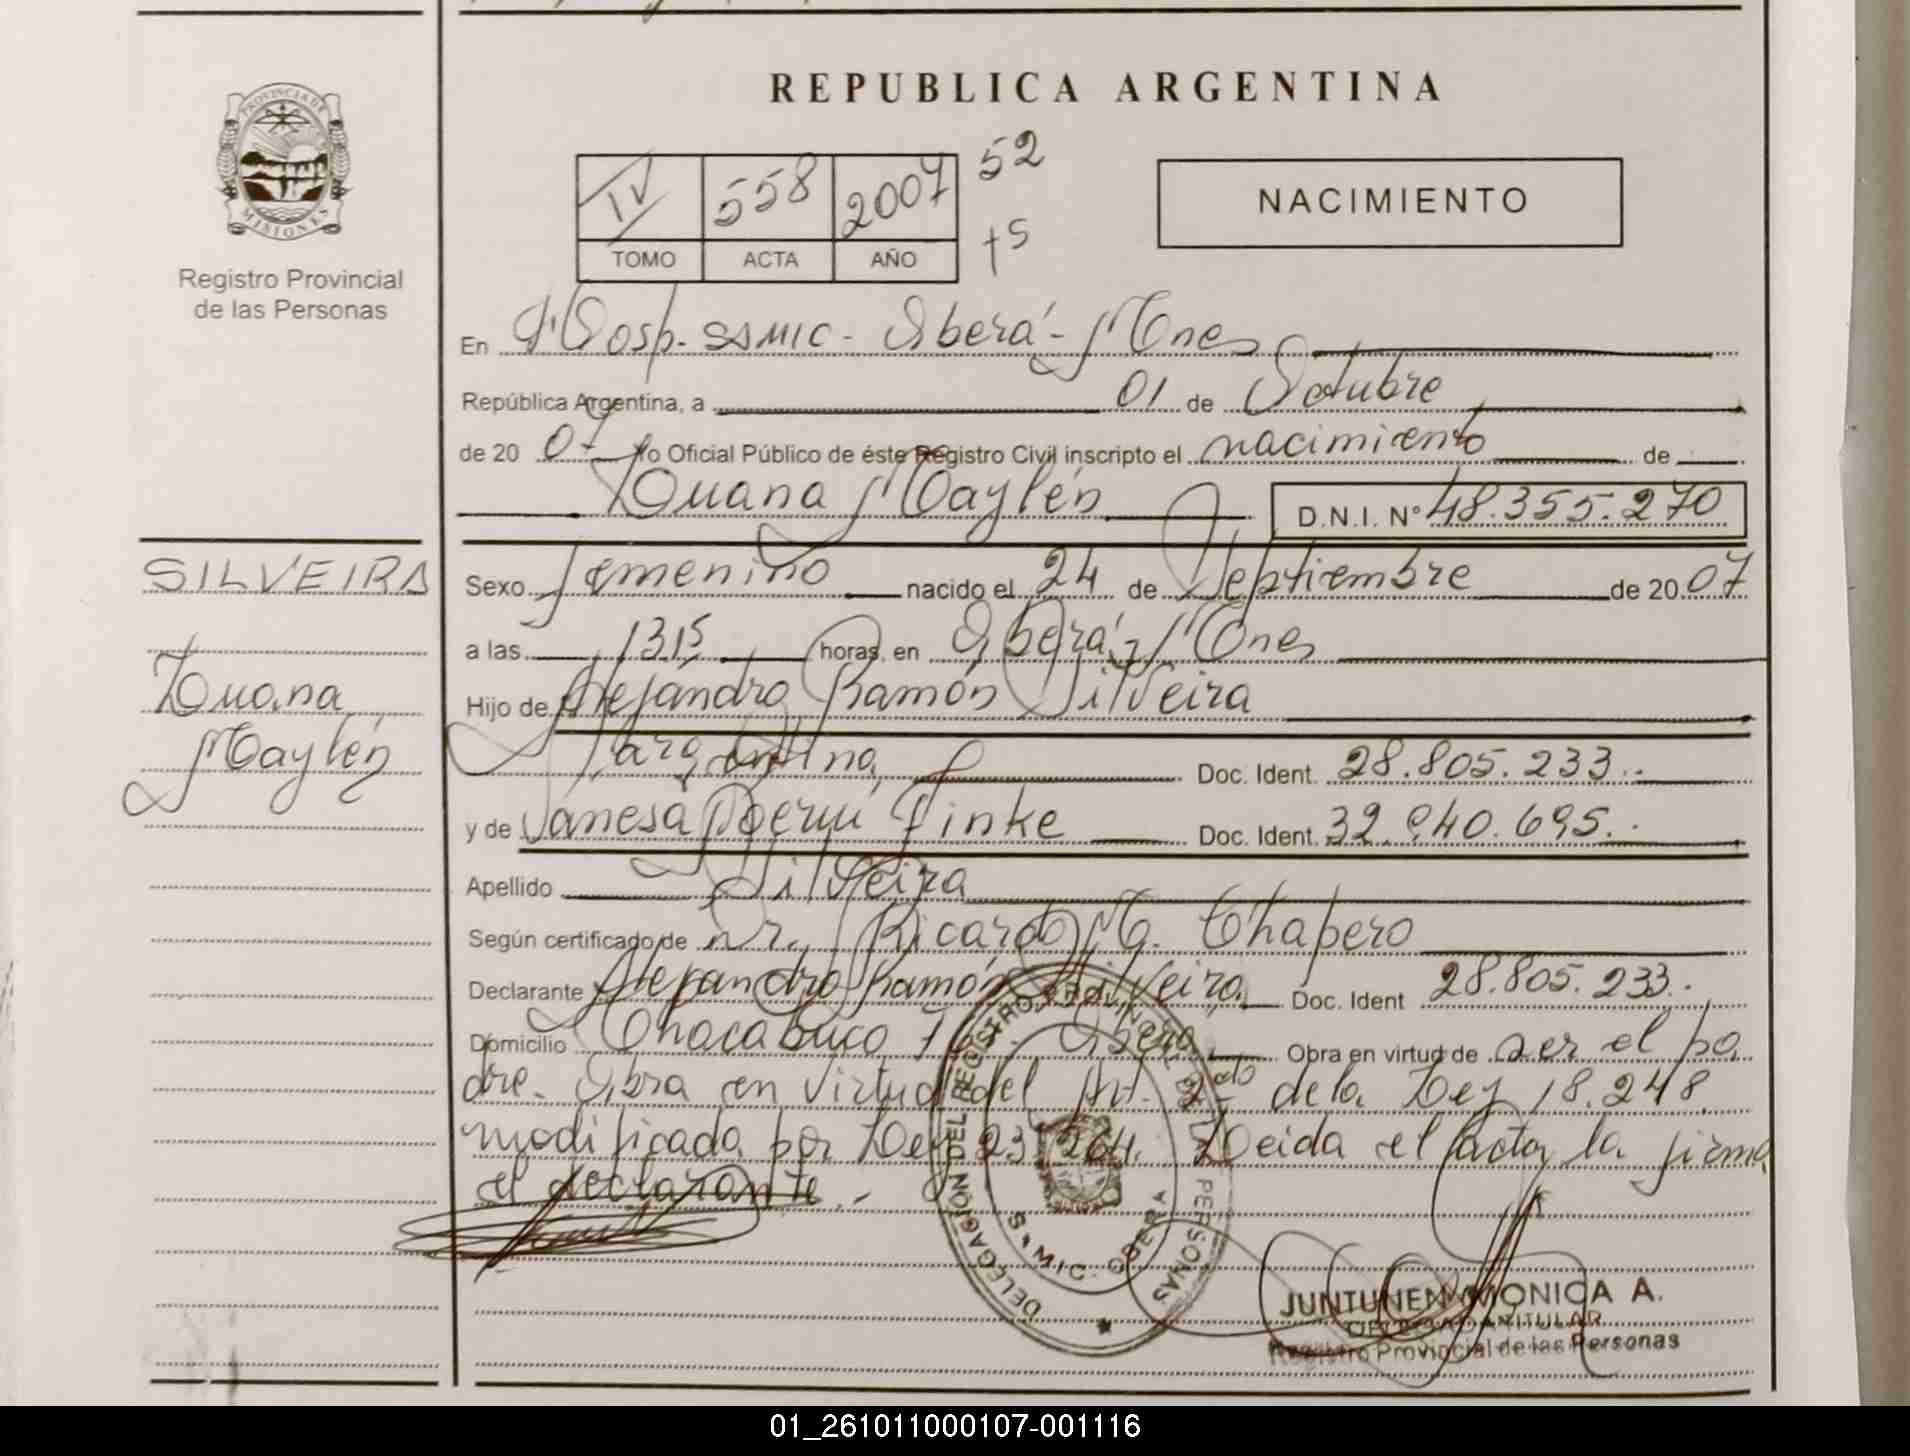 REPUBLICA ARGENTINA
PROVINCIA DE
MISIONES
Registro Provincial
de las Personas
IV 558 2007 52
TOMO ACTA AÑO +5
NACIMIENTO
En Hosp. SAMIC - Oberá - Mnes
República Argentina, a 01 de Octubre
de 20 07 Yo Oficial Público de éste Registro Civil inscripto el nacimiento de
Luana Maylén D.N.I. N° 48.355.270
SILVEIRA
Luana
Maylén
Sexo femenino nacido el 24 de Septiembre de 20 07
a las 1315 horas, en Oberá - Mnes
Hijo de Alejandro Ramón Silveira
Argentina, Doc. Ident. 28.805.233.-
y de Vanesa Pinke Doc. Ident. 32.940.695.-
Apellido Silveira
Según certificado de Dr. Ricardo M. Chapero
Declarante Alejandro Ramón Silveira Doc. Ident 28.805.233.-
Domicilio Chacabuco Oberá Obra en virtud de ser el pa
dre. Obra en virtud del Art. 2do de la Ley 18.248
modificada por Ley 23.264. Leida el acta, la firma
el declarante.-
DELEGACIÓN DEL REGISTRO PROVINCIAL DE LAS PERSONAS
S.A.MIC. OBERA
JUNTUNEN MONICA A.
Registro Provincial de las Personas
01_261011000107-001116